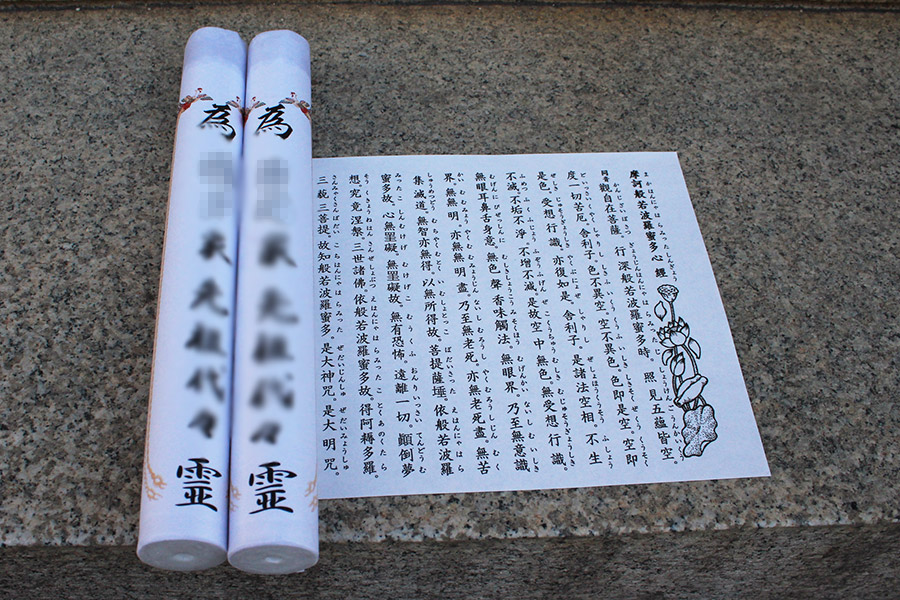 摩訶般若波羅蜜多心經
同音 觀自在菩薩。行深般若波羅蜜多時。照見五蘊皆空。
度一切苦厄。舍利子。色不異空。空不異色。色即是空。空即
是色。受想行識。亦復如是。舍利子。是諸法空相。不生
不滅。不垢不淨。不增不減。是故空中。無色。無受想行識。
無眼耳鼻舌身意。無色聲香味觸法。無眼界。乃至無意識
界。無無明。亦無無明盡。乃至無老死。亦無老死盡。無苦
集滅道。無智亦無得。以無所得故。菩提薩埵。依般若波羅
蜜多故。心無罣礙。無罣礙故。無有恐怖。遠離一切。顛倒夢
想。究竟涅槃。三世諸佛。依般若波羅蜜多故。得阿耨多羅
三藐三菩提。故知般若波羅蜜多。是大神咒。是大明咒。
為 家先祖代々 霊
為 家先祖代々 霊